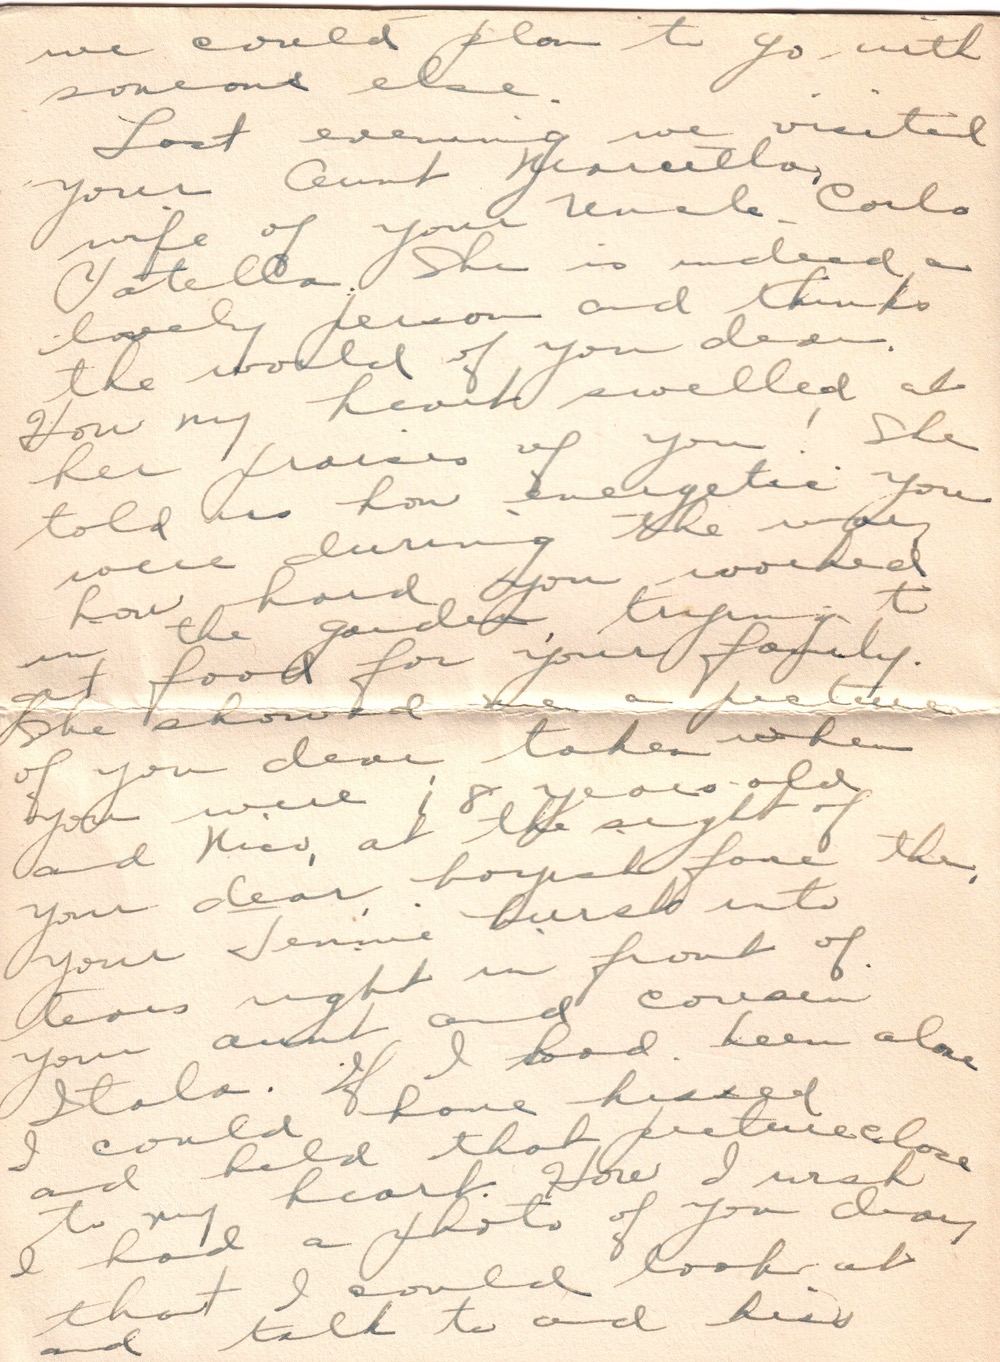 we could plan to go with
someone else.
Last evening we visited
your Aunt Marcella,
wife of your Uncle Carlo
Patella. She is indeed a
lovely person and thinks
the world of you dear.
How my heart swelled at
her praises of you! She
told us how energetic you
were during the war,
how hard you worked
in the garden, trying to
get food for your family.
She showed me a picture
of you dear taken when
you were 18 years old
and Nico, at the sight of
your dear, boyish face then,
your Jennie bursts into
tears right in front of
your aunt and cousin
Itala. If I had been alone
I could have kissed
and held that picture close
to my heart. How I wish
I had a photo of you dear,
that I could look at
and talk to and kiss